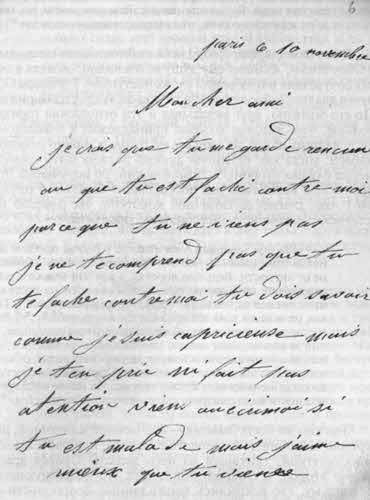 6
paris le 10 novembre
Mon cher ami
je crois que tu me garde rencun
ou que tu est faché contre moi
parce que tu ne viens pas
je ne te comprend pas que tu
te fache contre moi tu dois savoir
comme je suis capricieuse mais
je ten prie ni fait pas
atention viens
tu est malade mais j'aime
mieux que tu viense